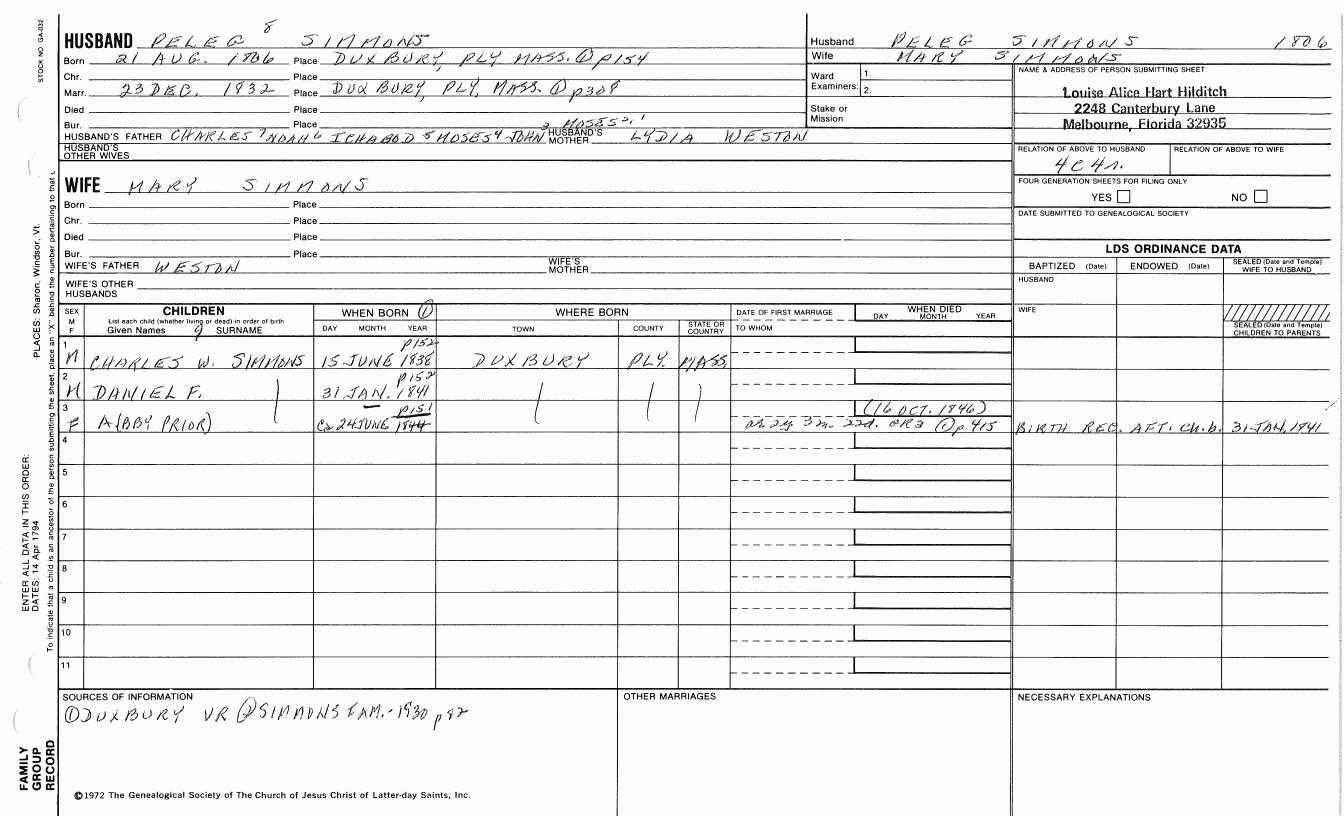 STOCK NO. GA-032
HUSBAND PELEG 8 SIMMONS
Born 21 AUG. 1806 Place DUXBURY, PLY MASS. ① p154
Chr. Place
Marr. 23 DEC. 1832 Place DUXBURY, PLY, MASS. ① p308
Died Place
Bur. Place
HUSBAND'S FATHER CHARLES 7 NOAH 6 ICHABOD 5 MOSES 4 JOHN 3 MOSES 2, 1 HUSBAND'S MOTHER LYDIA WESTON
HUSBAND'S OTHER WIVES
Husband PELEG SIMMONS 1806
Wife MARY SIMMONS
Ward Examiners: 1. 2.
Stake or Mission
NAME & ADDRESS OF PERSON SUBMITTING SHEET
Louise Alice Hart Hilditch
2248 Canterbury Lane
Melbourne, Florida 32935
RELATION OF ABOVE TO HUSBAND RELATION OF ABOVE TO WIFE
4C4r.
FOUR GENERATION SHEETS FOR FILING ONLY
YES NO
DATE SUBMITTED TO GENEALOGICAL SOCIETY
WIFE MARY SIMMONS
Born Place
Chr. Place
Died Place
Bur. Place
WIFE'S FATHER WESTON WIFE'S MOTHER
WIFE'S OTHER HUSBANDS
LDS ORDINANCE DATA
BAPTIZED (Date) ENDOWED (Date) SEALED (Date and Temple) WIFE TO HUSBAND
HUSBAND
WIFE
SEALED (Date and Temple) CHILDREN TO PARENTS
SEX M F CHILDREN WHEN BORN ① WHERE BORN DATE OF FIRST MARRIAGE WHEN DIED
List each child (whether living or dead) in order of birth
Given Names 9 SURNAME DAY MONTH YEAR TOWN COUNTY STATE OR COUNTRY TO WHOM DAY MONTH YEAR
1 M CHARLES W. SIMMONS 15 JUNE 1838 p152 DUXBURY PLY. MASS.
2 M DANIEL F. 31 JAN. 1841 p152
3 F A(BBY PRIOR) Ca 24 JUNE 1844 p151 (16 OCT. 1846) ar 2y 3m. 22d. GR3 ① p415 BIRTH REC. AFT. Ch. b. 31-JAN, 1841
4
5
6
7
8
9
10
11
SOURCES OF INFORMATION OTHER MARRIAGES NECESSARY EXPLANATIONS
① DUXBURY VR ② SIMMONS FAM. - 1930 p 82
©1972 The Genealogical Society of The Church of Jesus Christ of Latter-day Saints, Inc.
FAMILY GROUP RECORD
ENTER ALL DATA IN THIS ORDER:
DATES: 14 Apr 1794
PLACES: Sharon, Windsor, Vt.
To indicate that a child is an ancestor of the person submitting the sheet, place an "X" behind the number pertaining to that